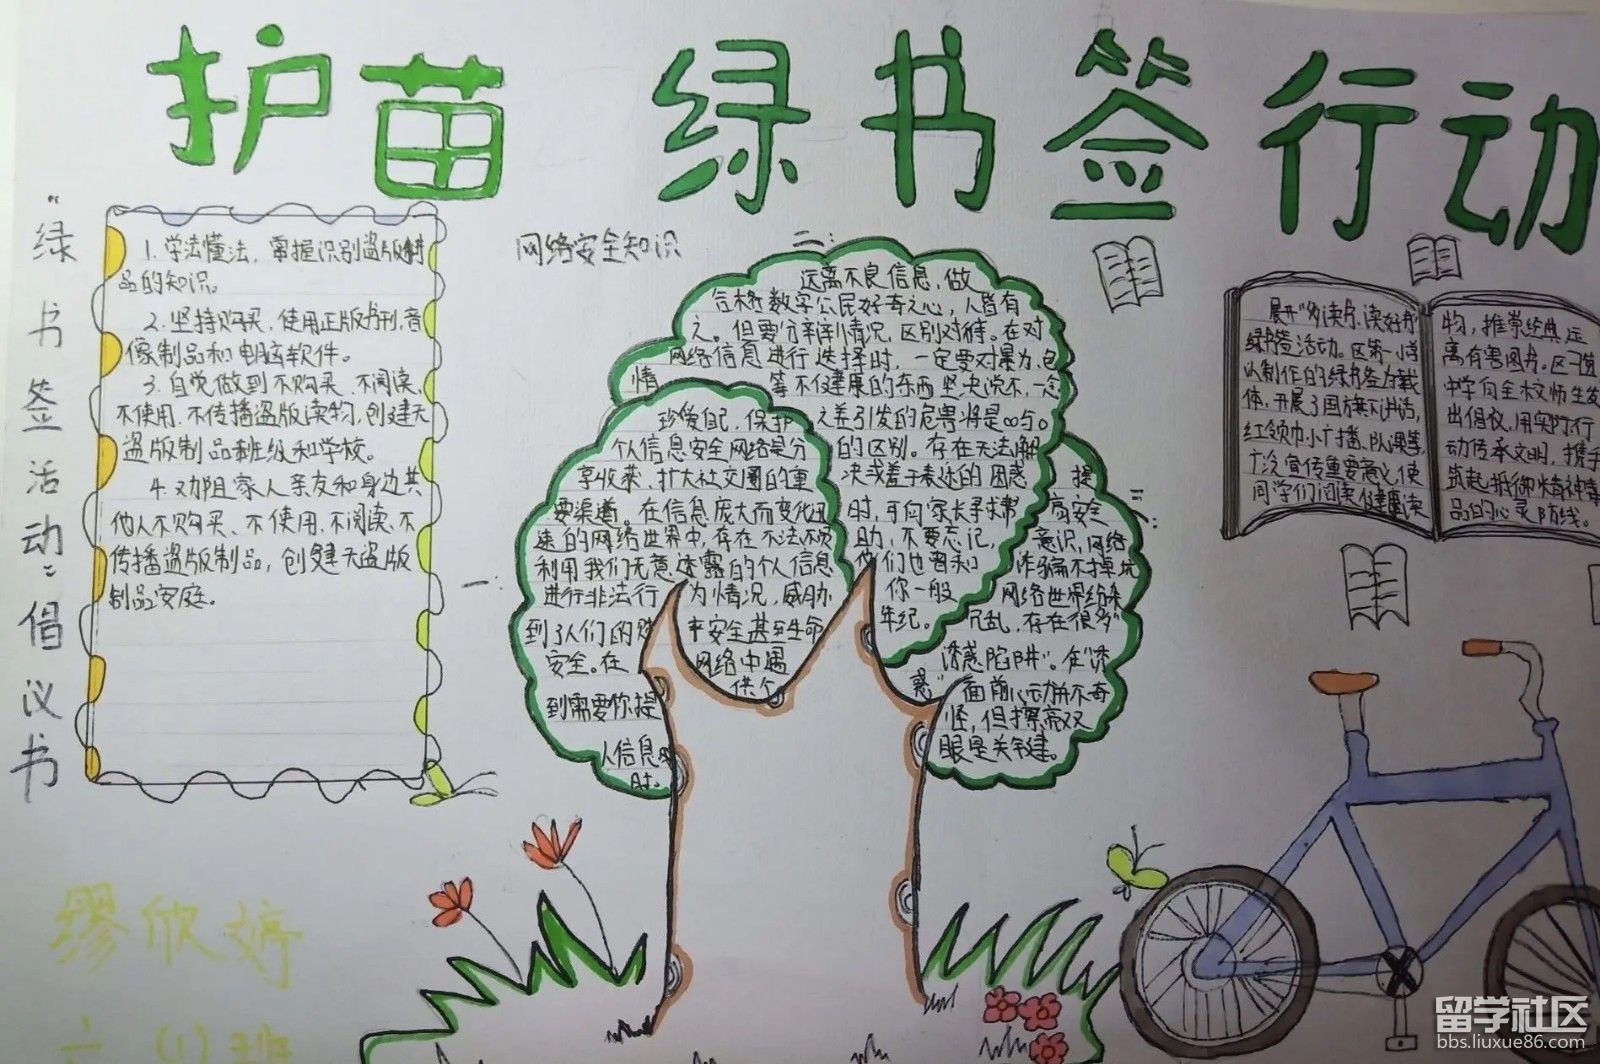 护苗 绿书签行动
“绿书签活动”倡议书
1. 学法懂法, 掌握识别盗版制
品的知识。
2. 坚持购买, 使用正版书刊, 音
像制品和电脑软件。
3. 自觉做到不购买、不阅读,
不使用、不传播盗版读物, 创建无
盗版制品班级和学校。
4. 劝阻家人亲友和身边其
他人不购买、不使用、不阅读、不
传播盗版制品, 创建无盗版
制品家庭。
网络安全知识
一:
珍爱自己, 保护
个人信息安全网络是分
享收获, 扩大社交圈的重
要渠道。在信息庞大而变化迅
速的网络世界中, 存在不法
利用我们无意透露的个人信息
进行非法行为情况, 威胁
到了人们的财产安全甚至生命
安全。在网络中遇
到需要你提供个
人信息时。
二:
远离不良信息, 做
合格数字公民好奇之心, 人皆有
之。但要分辨情况, 区别对待。在对
网络信息进行选择时, 一定要对暴力、色
情等不健康的东西坚决说不, 一念
之差引发的危害将是∞与0
的区别。存在无法解
决或羞于表达的困惑
时, 可向家长寻求帮
助, 不要忘记,
他们也曾和
你一般
年纪。
三:
提
高安全
意识, 网络
诈骗不掉坑
网络世界纷杂
冗乱, 存在很多“
诱惑陷阱”。在“诱
惑”面前心动并不奇
怪, 但擦亮双
眼是关键。
展开“多读书、读好书”
绿书签活动。区第一小学
以制作的绿书签为载
体, 开展了国旗下讲话,
红领巾小广播、队课等,
广泛宣传重要意义, 使
同学们阅读健康读
物, 推崇经典, 远
离有害图书。区
中学向全校师生发
出倡议, 用实际行
动传承文明, 携手
筑起抵御精神毒
品的心灵防线。
缪欣婷
六(1)班
留学社区
bbs.liuxue86.com